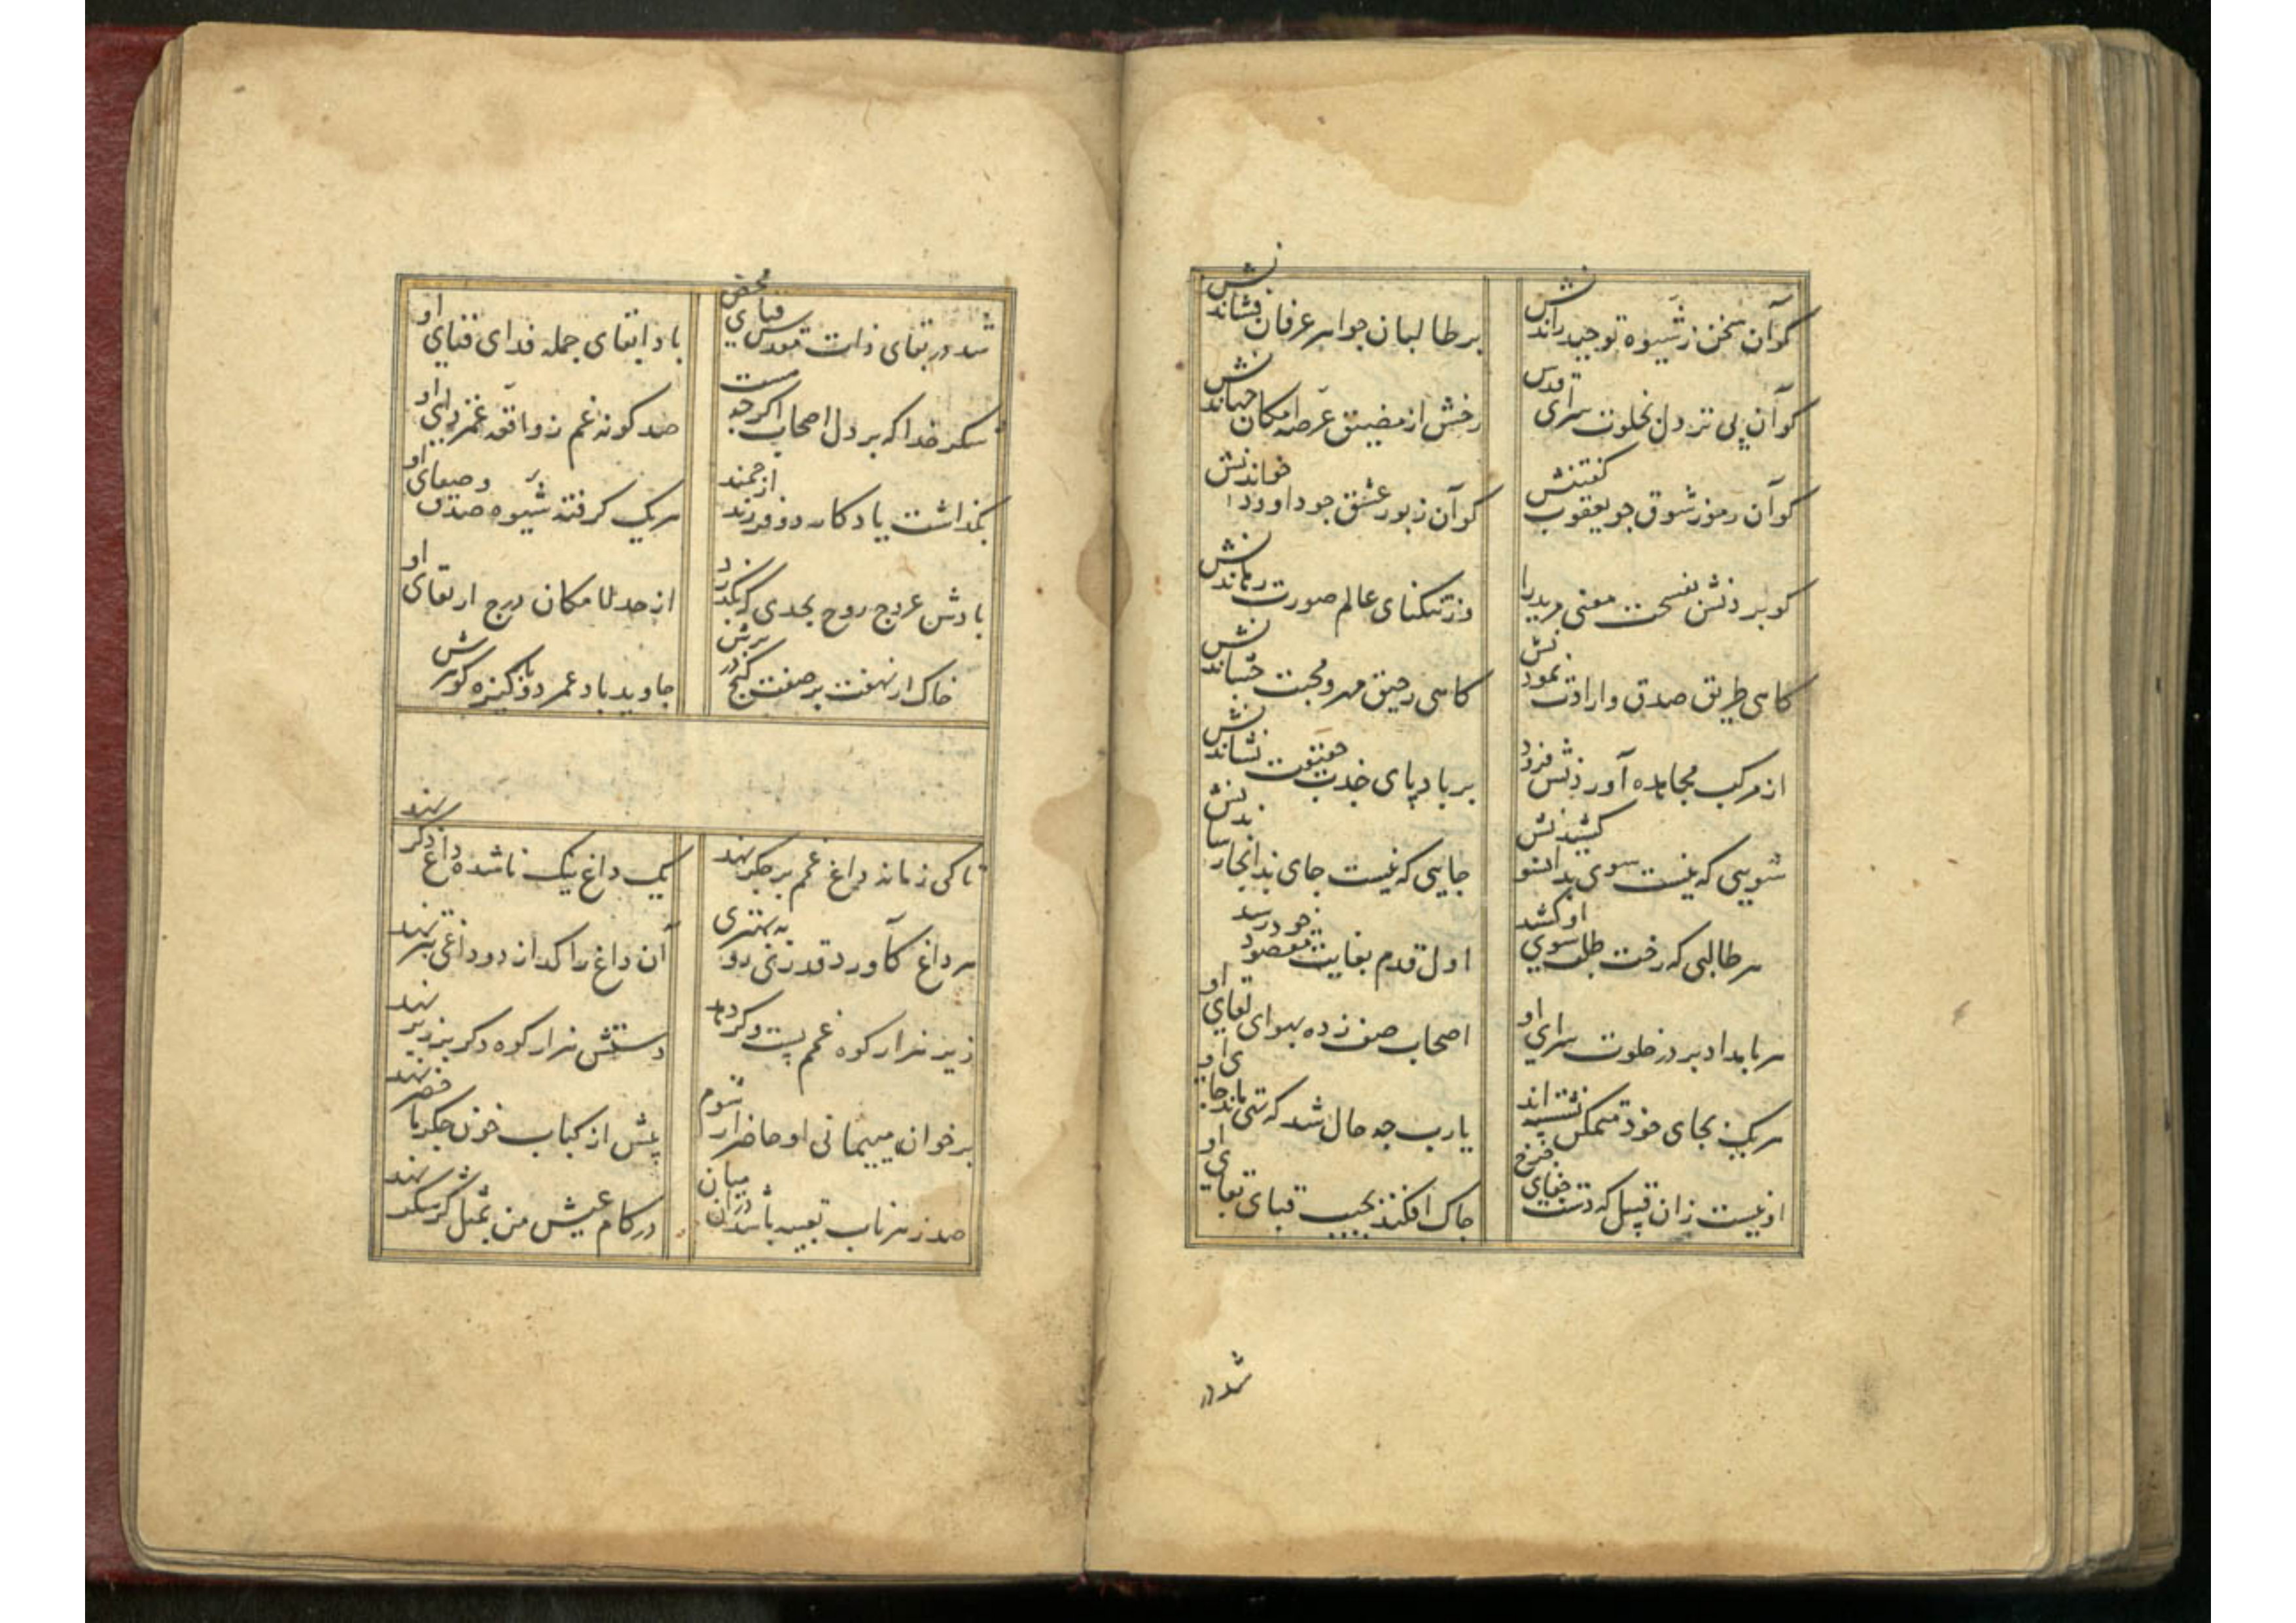 کو آن سخن ز شیوه توحید راندنش
بر طالبان جواهر عرفان فشاندنش
کو آن پی تنزدل بخلوت سرای قدس
رخش از مضیق عرصه امکان جهاندنش
کو آن رموز شوق چو یعقوب گفتنش
کو آن زبور عشق چو داوود خواندنش
کو بردنش بفسحت معنی مرید را
وز تنکنای عالم صورت رماندنش
کاهی طریق صدق و ارادت نمودنش
کاهی رحیق مهر و محبت چشاندنش
از مرکب مجاهده آوردنش فرود
بر بادپای جذب حقیقت نشاندنش
سویی که نیست سوی بدانسو کشیدنش
جایی که نیست جای بدانجا رساندنش
هر طالبی که رخت طلب سوی او کشد
اول قدم بغایت مقصود خود رسد
هر بامداد بر در خلوت سرای او
اصحاب صف زده بهوای لقای او
هر یک بجای خود متمکن نشسته اند
یا رب چه حال شد که تهی ماند جای او
او نیست زان قبیل که دست فنای چرخ
چاک افکند بجیب قبای بقای او
شد در
شد در بقای ذات مقدس فنای محض
باد ابقای جمله فدای فنای او
شکر خدا که بر دل اصحاب اکرچه هست
صد کونه غم ز واقعه غمزدای او
بکذاشت یادکار دو فرزند ارجمند
هر یک کرفته شیوه صدق و صفای او
بادش عروج روح بحدی که بکذرد
از حد لامکان درج ارتقای او
خاک ار نهفت بر صفت کنج در برش
جاوید باد عمر دو پاکیزه کوهرش
تا کی زمانه داغ غمم بر جکر نهد
یک داغ نیک ناشده داغ دکر نهد
هر داغ کآورد قدری رو به بهتری
آن داغ را کذارد و داغی بتر نهد
زیر هزار کوه غمم پست کرد و باز
دستش هزار کوه دکر بر زبر نهد
بر خوان میهمانی او حاضر ار شوم
پیشم از کباب خون جکر ما حضر نهد
صد زهر ناب تعبیه باشد در آن میان
در کام عیش من بمثل کر شکر نهد